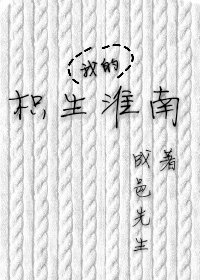 我的
枳生淮南
成邑先生
著